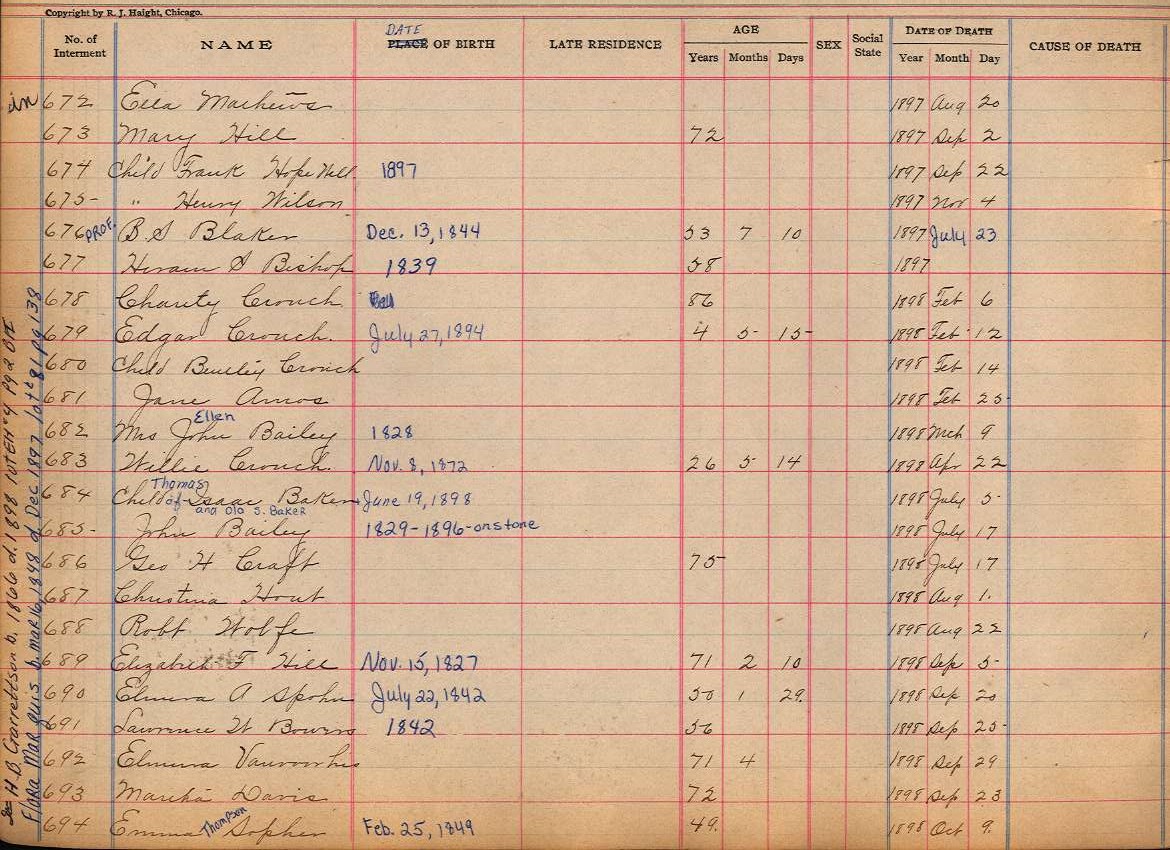 Copyright by R. J. Haight, Chicago.
No. of Interment NAME DATE PLACE OF BIRTH LATE RESIDENCE AGE Years Months Days SEX Social State DATE OF DEATH Year Month Day CAUSE OF DEATH
in 672 Ella Mathews 1897 Aug 20
673 Mary Hill 72 1897 Sep 2
674 Child Frank Hope Hill 1897 1897 Sep 22
675- " Henry Wilson 1897 Nov 4
676 PROF. B. S Blaker Dec. 13, 1844 53 7 10 1897 July 23
677 Hiram S Bishop 1839 58 1897
678 Charity Crouch 86 1898 Feb 6
679 Edgar Crouch. July 27, 1894 4 5- 15- 1898 Feb 12
680 Child Crouch 1898 Feb 14
681 Jane Amos 1898 Feb 25-
682 Mrs John Bailey Ellen 1828 1898 Mch 9
683 Willie Crouch. Nov. 8, 1872 26 5 14 1898 Apr 22
684 Child of Isaac Baker Thomas and Ola S. BAKER June 19, 1898 1898 July 5-
685- John Bailey 1829-1896-on stone 1898 July 17
686 Geo H Craft 75 1898 July 17
687 Christina Hout 1898 Aug 1.
688 Robt Wolfe 1898 Aug 22
689 Elizabeth F Hill Nov. 15, 1827 71 2 10 1898 Sep 5-
690 Elmira A Spohn July 22, 1842 50 1 29. 1898 Sep 20
691 Lawrence W Bowers 1842 56 1898 Sep 25-
692 Elmira Vanvoorhis 71 4 1898 Sep 29
693 Martha Davis 72 1898 Sep 23
694 Emma Thompson Sopher Feb. 25, 1849 49. 1898 Oct 9.
H.B. Garrettson b. 1866 d. 1898 Pg 2
FLORA MARQUIS b. mar 16, 1848 d. Dec 1897 lot # 81 pg 138